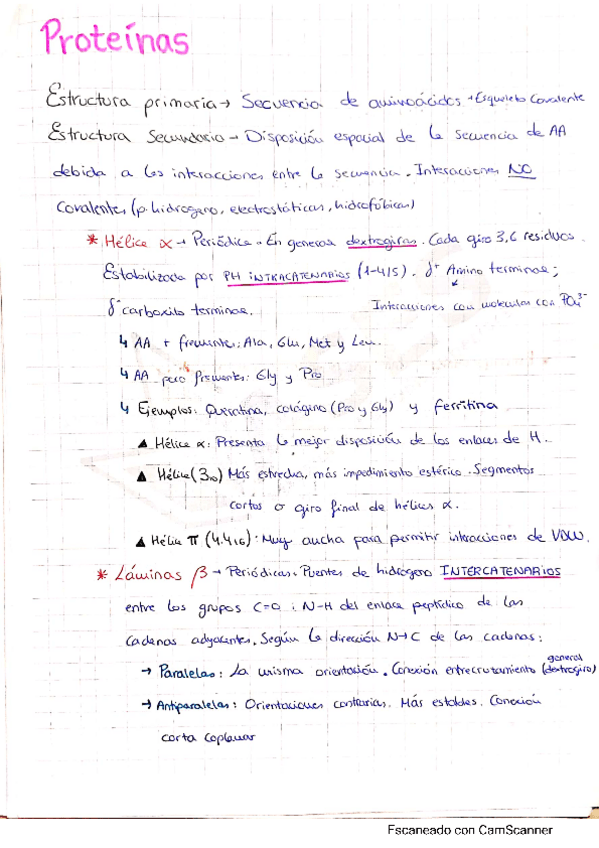 Proteínas
Estructura primaria → Secuencia de aminoácidos → Esqueleto Covalente
Estructura Secundaria → Disposición espacial de la secuencia de AA
debida a las interacciones entre la secuencia. Interacciones NO
Covalentes (p. hidrogeno, electrostáticas, hidrofóbicas)
* Hélice α → Periódica. En general dextrogiras. Cada giro 3,6 residuos.
Estabilizada por PH INTRACATENARIOS (1-4/5). δ+ Amino terminal;
δ- carboxilo terminal. Interacciones con moleculas con PO₄³⁻
↳ AA + frecuentes: Ala, Glu, Met y Leu.
↳ AA poco frecuentes: Gly y Pro
↳ Ejemplos: Queratina, colágeno (Pro y Gly) y ferritina
▲ Hélice α: Presenta la mejor disposición de los enlaces de H.
▲ Hélice (3₁₀) Más estrecha, más impedimento estérico. Segmentos
cortos o giro final de hélices α.
▲ Hélice π (4.4₁₆): Muy ancha para permitir interacciones de VDW.
* Láminas β → Periódicas. Puentes de hidrógeno INTERCATENARIOS
entre los grupos C=O i N-H del enlace peptídico de las
cadenas adyacentes. Según la dirección N→C de las cadenas:
→ Paralelas: La misma orientación. Conexión entrecruzamiento (general dextrogiro)
→ Antiparalelas: Orientaciones contrarias. Más estables. Conexión
corta coplanar
Escaneado con CamScanner